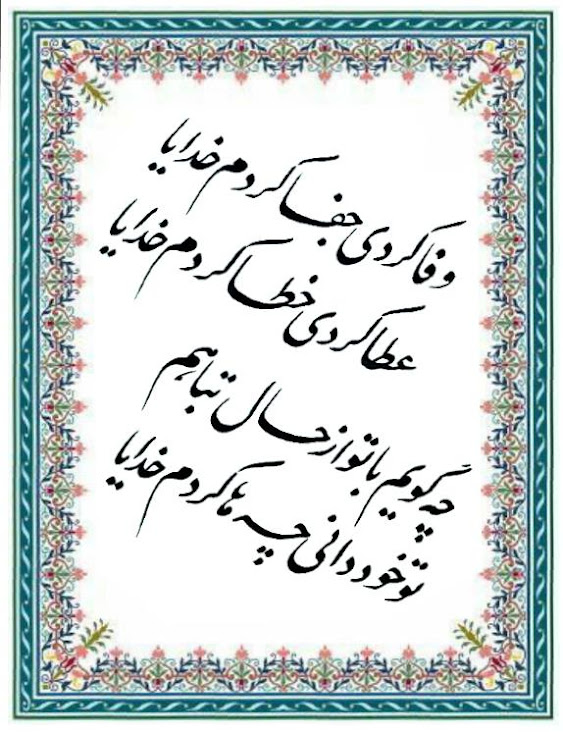 وفا کردی جفا کردم خدایا
عطا کردی خطا کردم خدایا
چه گویم با تو از حال تباهم
تو خود دانی چه ها کردم خدایا